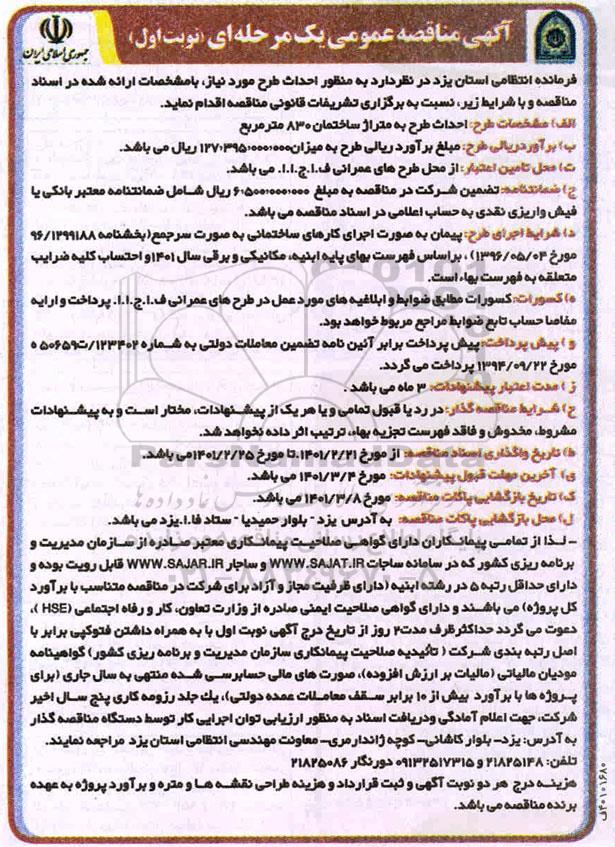 آگهی مناقصه عمومی یک مرحله ای (نوبت اول)
جمهوری اسلامی ایران
فرمانده انتظامی استان یزد در نظر دارد به منظور احداث طرح مورد نیاز، بامشخصات ارائه شده در اسناد
مناقصه و با شرایط زیر، نسبت به برگزاری تشریفات قانونی مناقصه اقدام نماید.
الف) مشخصات طرح: احداث طرح به متراژ ساختمان ۸۳۰ مترمربع
ب) برآورد ریالی طرح: مبلغ برآورد ریالی طرح به میزان ۱۲۷،۳۹۵،۰۰۰،۰۰۰ ریال می باشد.
ت) محل تامین اعتبار: از محل طرح های عمرانی ف.ا.ج.ا.ا. می باشد.
ج) ضمانتنامه: تضمین شرکت در مناقصه به مبلغ ۶،۵۰۰،۰۰۰،۰۰۰ ریال شامل ضمانتنامه معتبر بانکی یا
فیش واریزی نقدی به حساب اعلامی در اسناد مناقصه می باشد.
د) شرایط اجرای طرح: پیمان به صورت اجرای کارهای ساختمانی به صورت سرجمع(بخشنامه ۹۶/۱۲۹۹۱۸۸
مورخ ۱۳۹۶/۰۵/۰۴) ، براساس فهرست بهای پایه ابنیه، مکانیکی و برقی سال ۱۴۰۱و احتساب کلیه ضرایب
متعلقه به فهرست بهاء است.
ه) کسورات: کسورات مطابق ضوابط و ابلاغیه های مورد عمل در طرح های عمرانی ف.ا.ج.ا.ا. پرداخت و ارایه
مفاصا حساب تابع ضوابط مراجع مربوط خواهد بود.
و) پیش پرداخت: پیش پرداخت برابر آئین نامه تضمین معاملات دولتی به شماره ۱۲۳۴۰۲/ت۵۰۶۵۹ ه
مورخ ۱۳۹۴/۰۹/۲۲ پرداخت می گردد.
ز) مدت اعتبار پیشنهادات: ۳ ماه می باشد .
ح) شرایط مناقصه گذار: در رد یا قبول تمامی و یا هر یک از پیشنهادات، مختار است و به پیشنهادات
مشروط، مخدوش و فاقد فهرست تجزیه بهاء، ترتیب اثر داده نخواهد شد.
ط) تاریخ واگذاری اسناد مناقصه: از مورخ ۱۴۰۱/۲/۲۱ تا مورخ ۱۴۰۱/۲/۲۵ می باشد.
ی) آخرین مهلت قبول پیشنهادات: مورخ ۱۴۰۱/۳/۴ می باشد.
ک) تاریخ بازگشایی پاکات مناقصه: مورخ ۱۴۰۱/۳/۸ می باشد.
ل) محل بازگشایی پاکات مناقصه: به آدرس یزد - بلوار حمیدیا - ستاد فا.ا.یزد می باشد.
- لذا از تمامی پیمانکاران دارای گواهی صلاحیت پیمانکاری معتبر صادره از سازمان مدیریت و
برنامه ریزی کشور که در سامانه ساجات WWW.SAJAT.IR و ساجار WWW.SAJAR.IR قابل رویت بوده و
دارای حداقل رتبه ۵ در رشته ابنیه (دارای ظرفیت مجاز و آزاد برای شرکت در مناقصه متناسب با برآورد
کل پروژه) می باشند و دارای گواهی صلاحیت ایمنی صادره از وزارت تعاون، کار و رفاه اجتماعی (HSE )،
دعوت می گردد حداکثر ظرف مدت۴ روز از تاریخ درج آگهی نوبت اول با به همراه داشتن فتوکپی برابر با
اصل رتبه بندی شرکت ( تائیدیه صلاحیت پیمانکاری سازمان مدیریت و برنامه ریزی کشور) گواهینامه
مودیان مالیاتی (مالیات بر ارزش افزوده)، صورت های مالی حسابرسی شده منتهی به سال جاری (برای
پروژه ها با برآورد بیش از ۱۰ برابر سقف معاملات عمده دولتی)، یک جلد رزومه کاری پنج سال اخیر
شرکت، جهت اعلام آمادگی ودریافت اسناد به منظور ارزیابی توان اجرایی کار توسط دستگاه مناقصه گذار
به آدرس: یزد- بلوار کاشانی- کوچه ژاندارمری- معاونت مهندسی انتظامی استان یزد مراجعه نمایند.
تلفن: ۲۱۸۲۵۱۴۸ و ۰۹۱۳۲۵۱۷۳۱۵ دورنگار ۲۱۸۲۵۰۸۶
هزینه درج هر دو نوبت آگهی و ثبت قرارداد و هزینه طراحی نقشه ها و متره و برآورد پروژه به عهده
برنده مناقصه می باشد.
۴۰۱۰۱۶۸۰/ف
ParsNamadData
۰۲۱-۸۸۳۴۹۶۷۰-۵